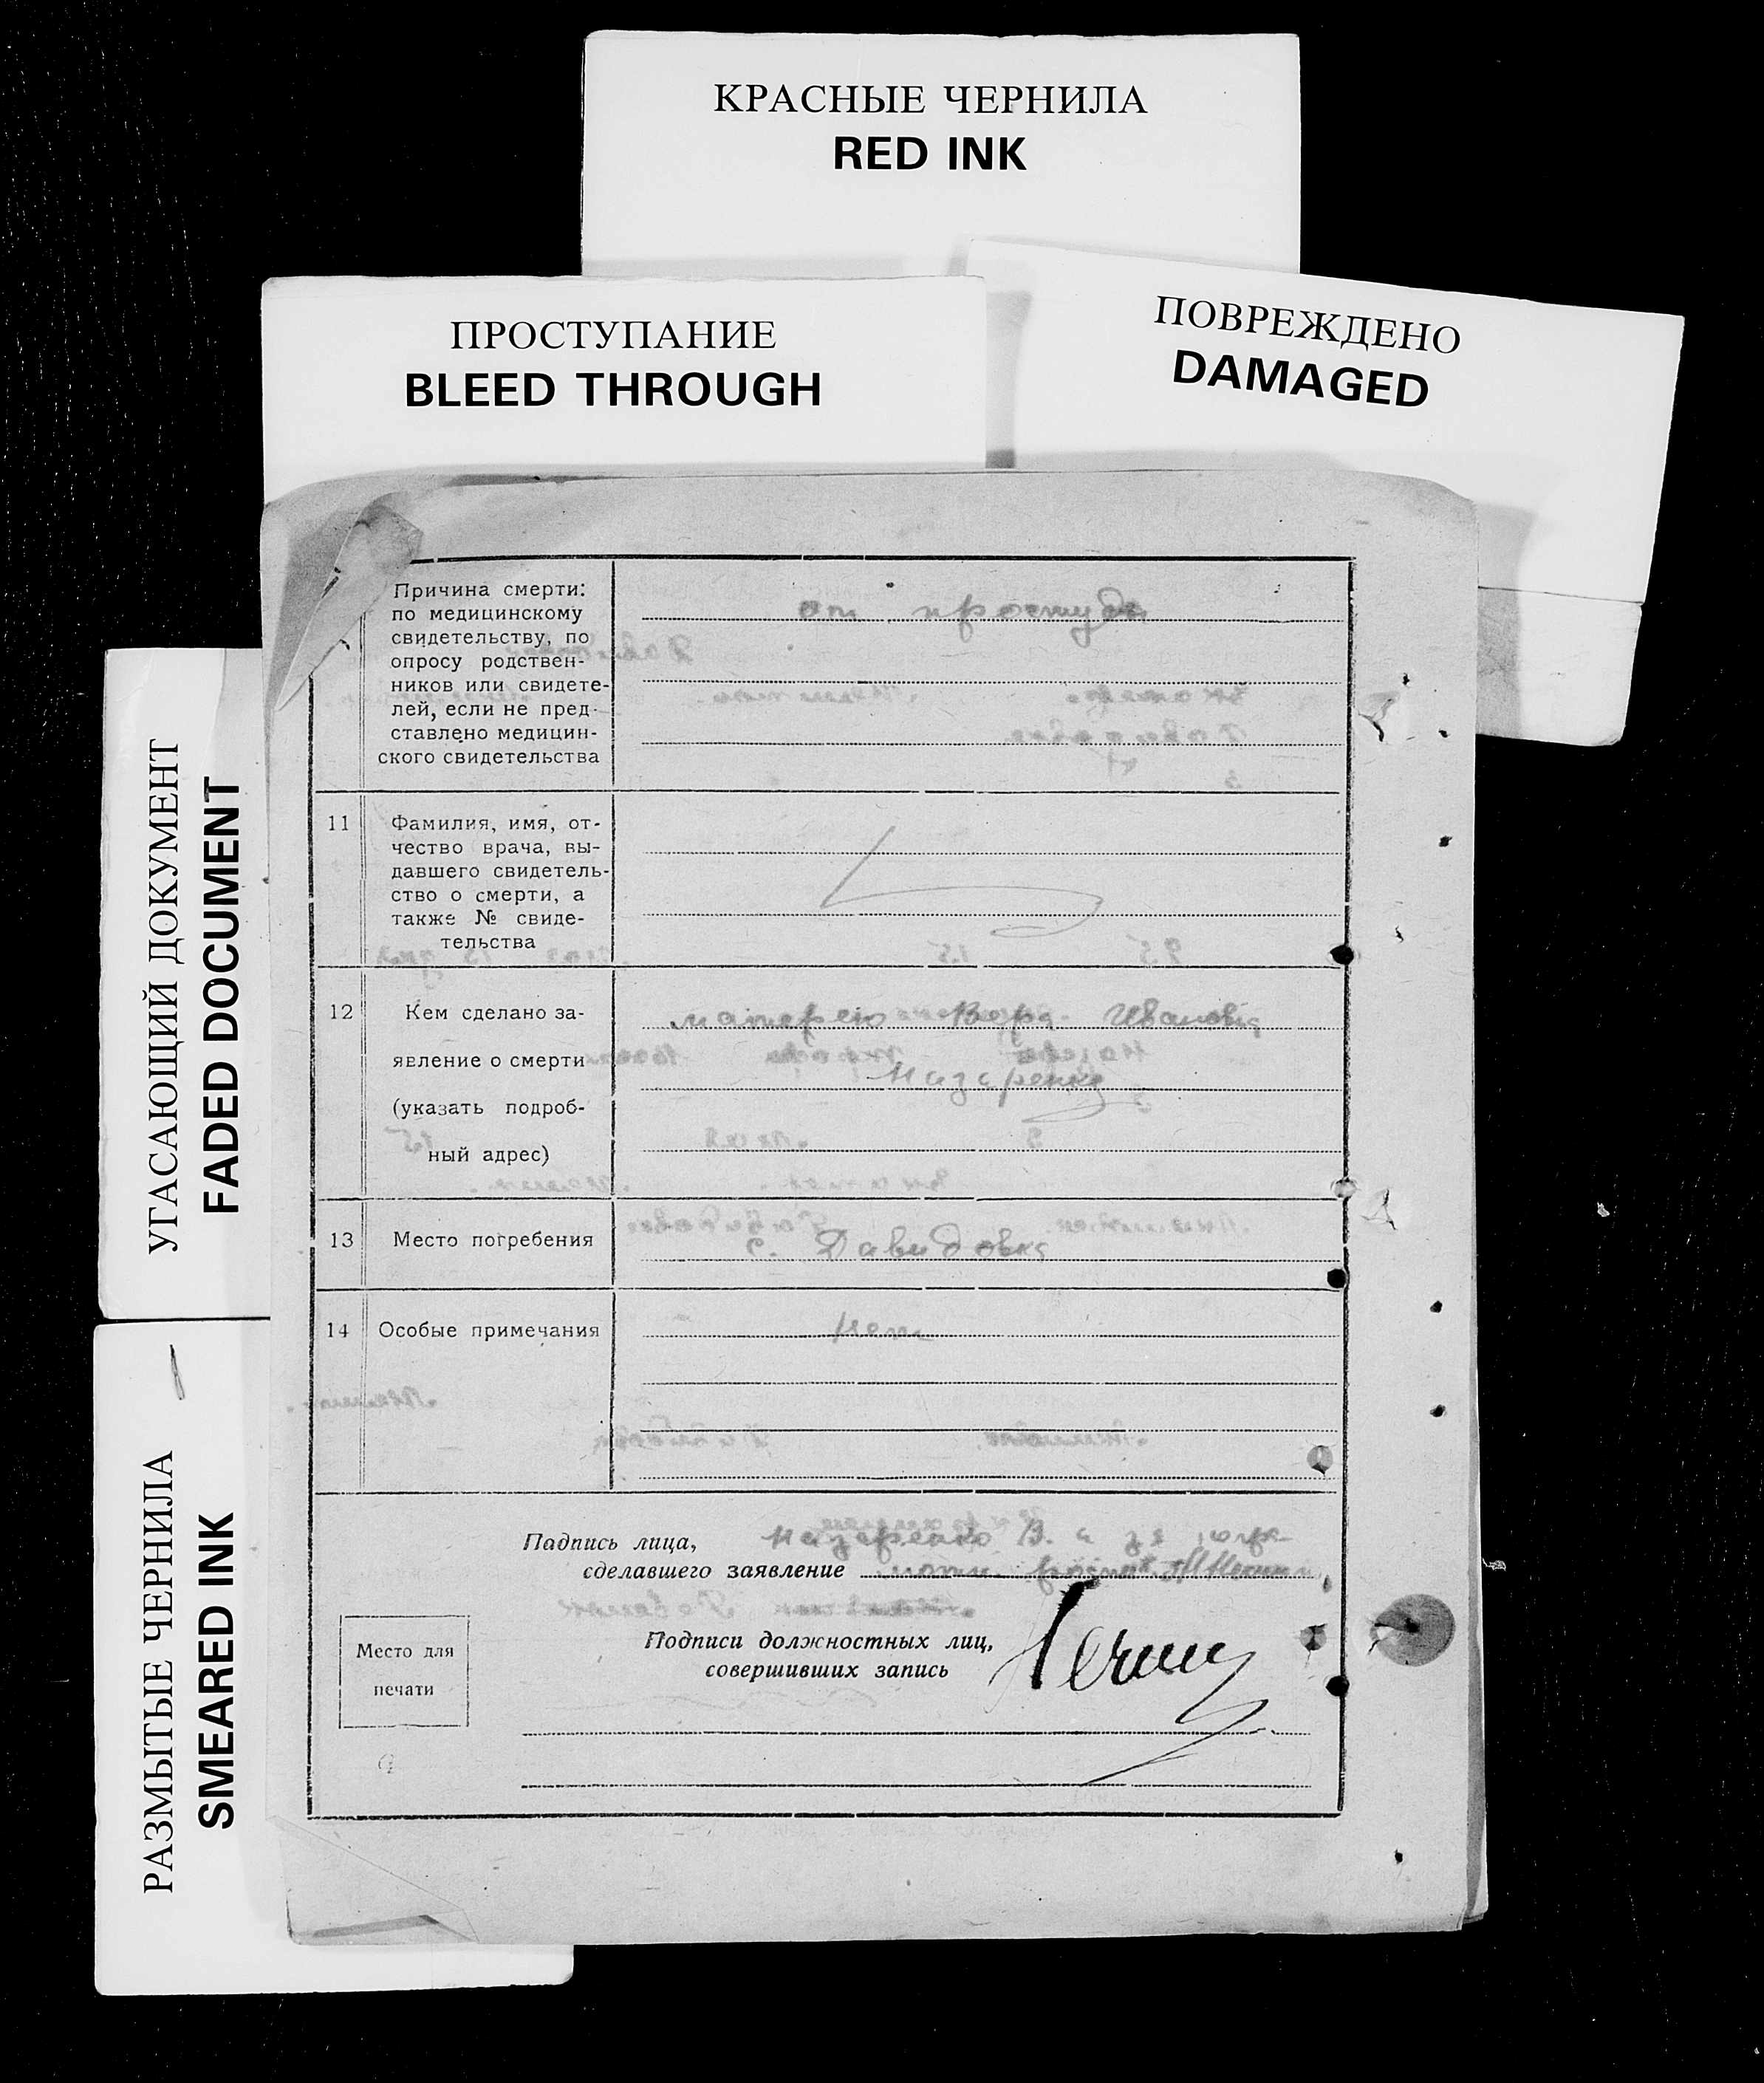 КРАСНЫЕ ЧЕРНИЛА
RED INK
ПРОСТУПАНИЕ
BLEED THROUGH
ПОВРЕЖДЕНО
DAMAGED
УГАСАЮЩИЙ ДОКУМЕНТ
FADED DOCUMENT
РАЗМЫТЫЕ ЧЕРНИЛА
SMEARED INK
Причина смерти:
по медицинскому
свидетельству, по
опросу родствен-
ников или свидете-
лей, если не пред-
ставлено медицин-
ского свидетельства
от простуды
11
Фамилия, имя, от-
чество врача, вы-
давшего свидетель-
ство о смерти, а
также № свиде-
тельства
12
Кем сделано за-
явление о смерти
(указать подроб-
ный адрес)
матерею Вера Ивановна
Назаренко
13
Место погребения
с. Давидовка
14
Особые примечания
нет
Падпись лица,
сделавшего заявление
Назаренко В. а за
Подписи должностных лиц,
совершивших запись
Место для
печати